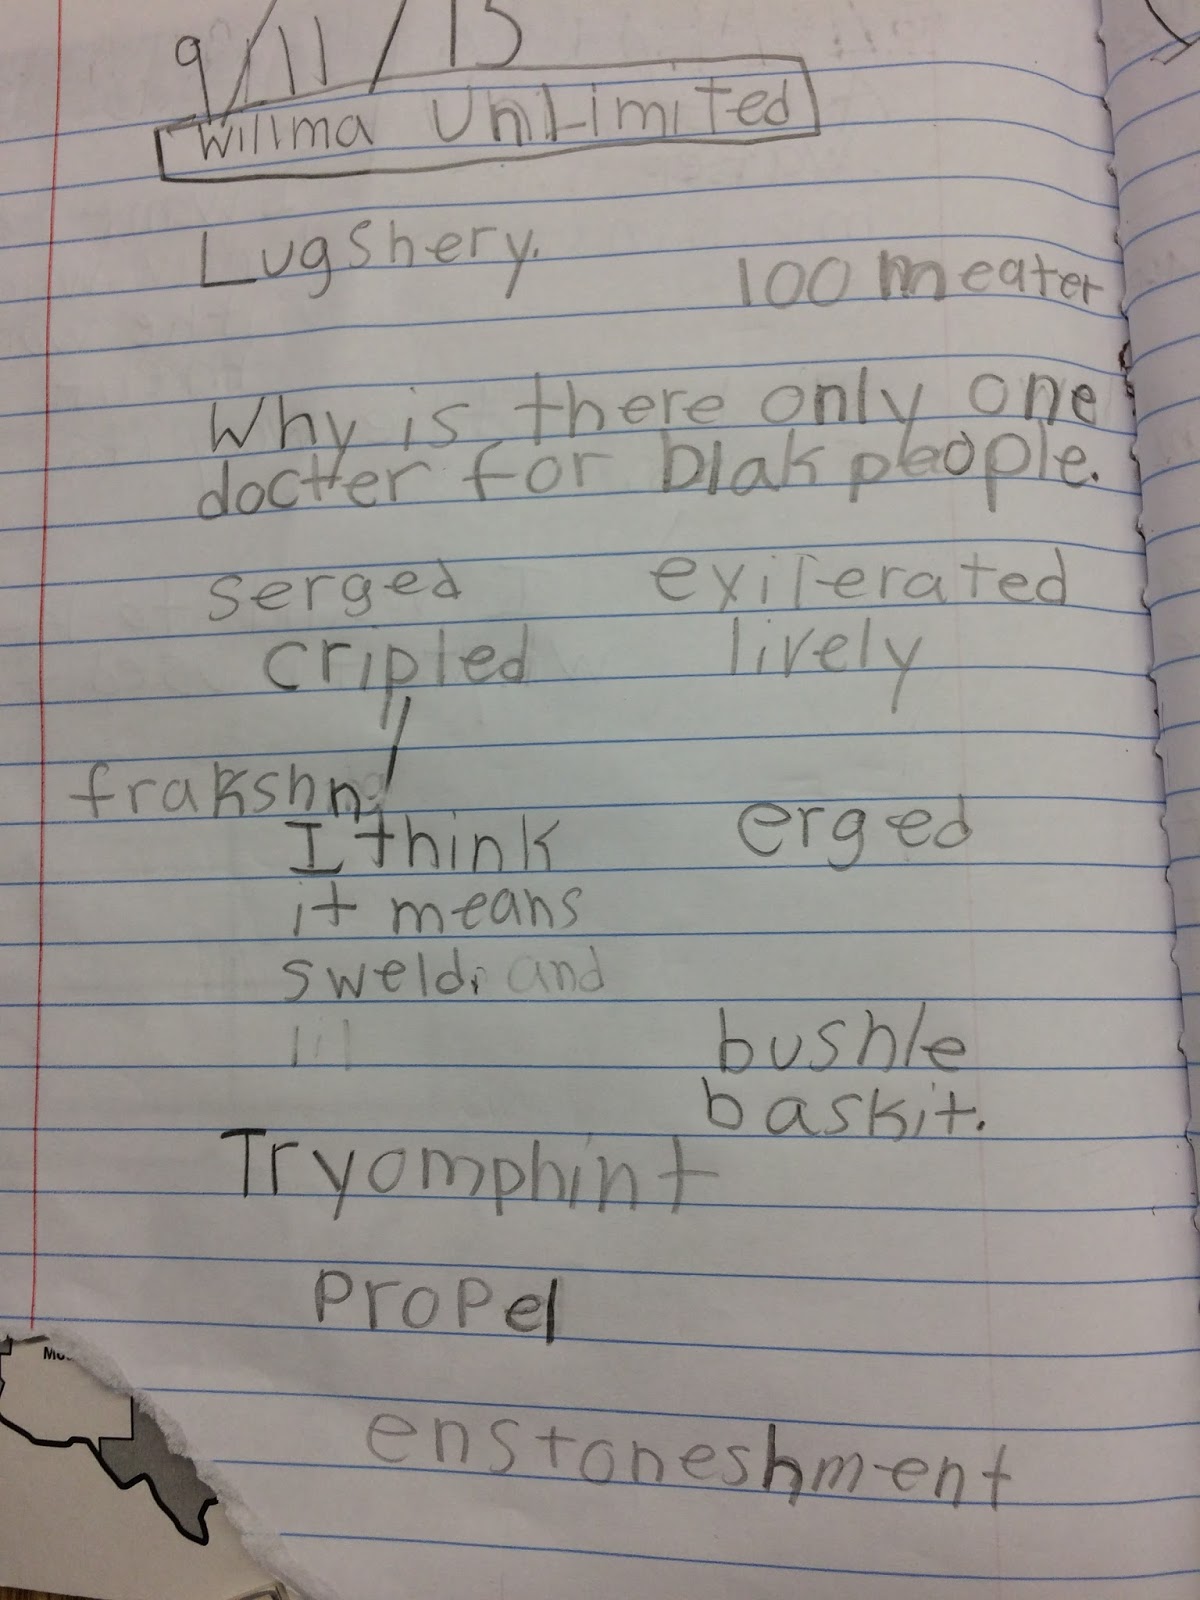 9/11/15
Willma UnLimited
Lugshery.
100 meater
Why is there only one
docter for blak people.
serged
exilerated
cripled
lively
frakshn
I think
erged
it means
sweld. and
bushle
baskit.
Tryomphint
propel
enstoneshment